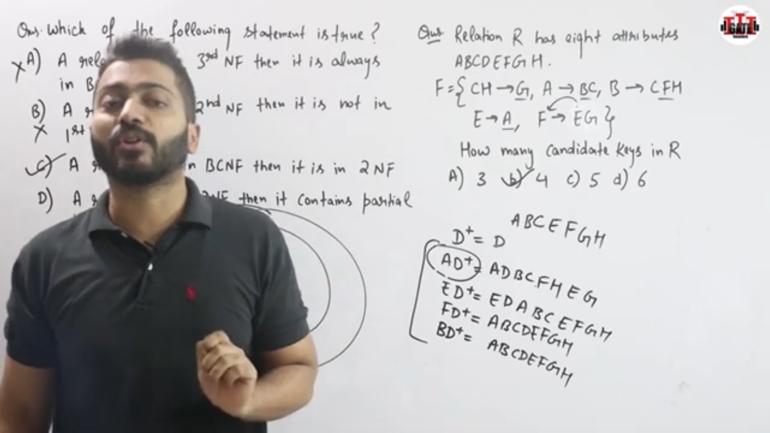 Ques. Which of the following statement is true?
XA) A rela 3rd NF then it is always
in B
B) A r 2nd NF then it is not in
X 1st
C) A r n BCNF then it is in 2 NF
D) A 2NF then it contains partial
Ques Relation R has eight attributes
ABCDEFGH.
F={CH→G, A→BC, B→CFH
E→A, F→EG}
How many candidate keys in R
A) 3 b) 4 c) 5 d) 6
ABCEFGH
D+ = D
AD+ = ADBCFHEG
ED+ = EDABCEFGH
FD+ = ABCDEFGH
BD+ = ABCDEFGH
GATE